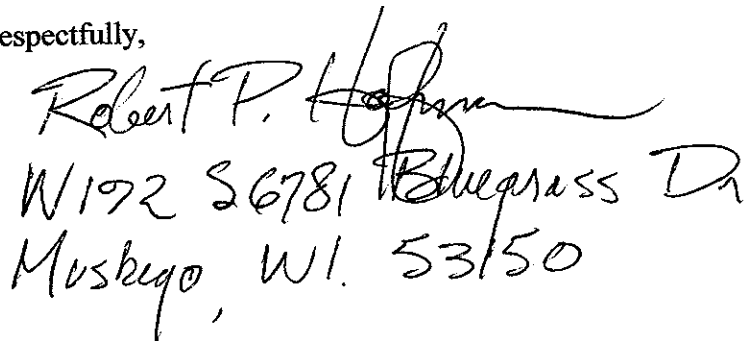 espectfully,
Robert P. Hoffman
W192 S6781 Bluegrass Dr
Muskego, WI. 53150